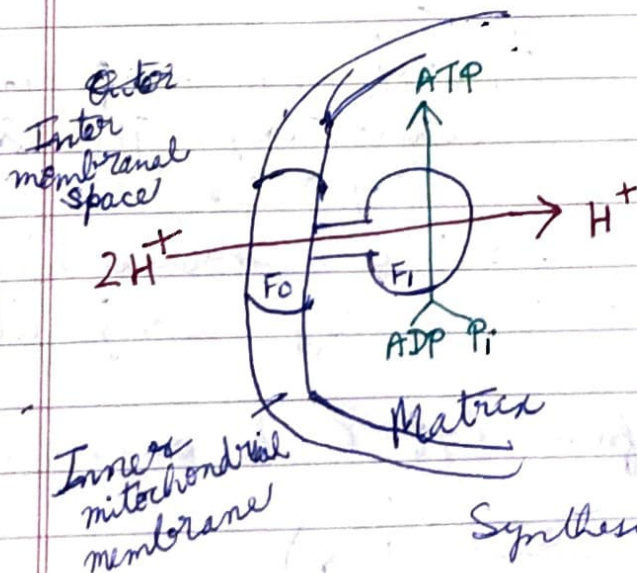 Outer
Inter
membranal
space
ATP
2H+
H+
F0
F1
ADP Pi
Matrix
Inner
mitochondrial
membrane